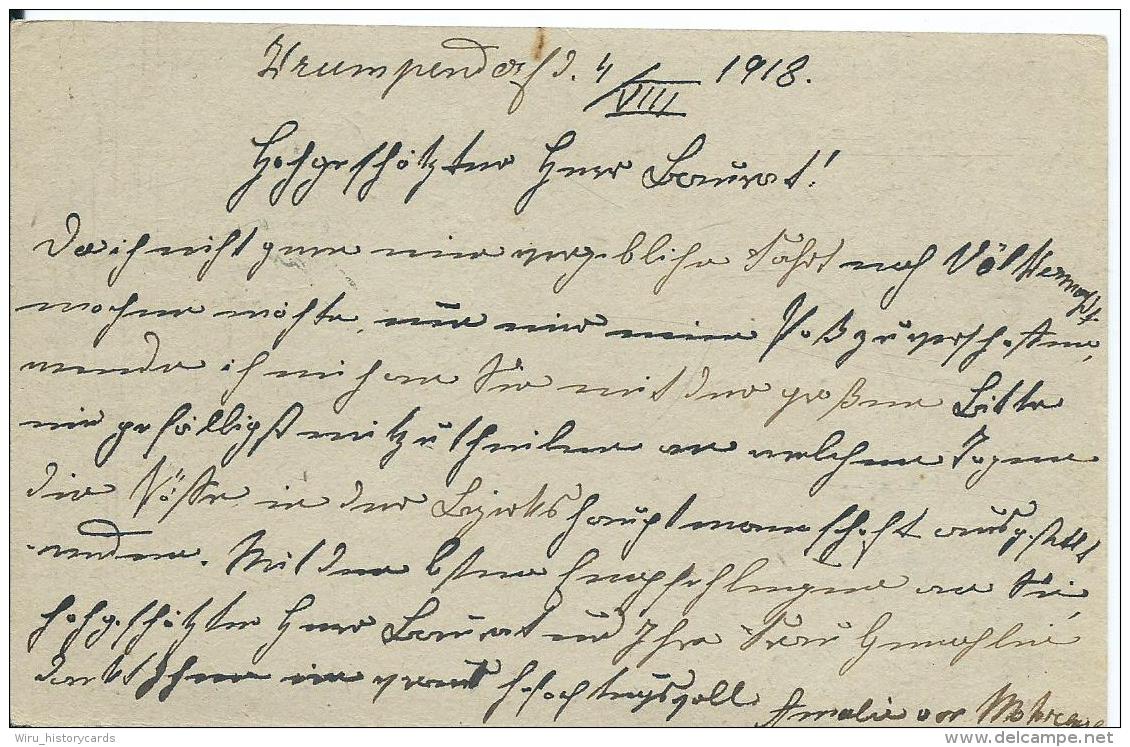 Krumpendorf d. 4/VIII 1918.
Hochgeschätzter Herr Baurat!
Da ich nicht gerne eine vergebliche Fahrt nach Völkermarkt
machen möchte, um mir meine Paß zu verschaffen,
wende ich mich an Sie mit der großen Bitte
mir gefälligst mitzutheilen an welchen Tagen
die Pässe in der Bezirkshauptmannschaft ausgestellt
werden. Mit den besten Empfehlungen an Sie,
hochgeschätzter Herr Baurat und Ihre Frau Gemahlin
dankt Ihnen im voraus hochachtungsvoll Amalie von
Wiru_historycards
delcampe.net